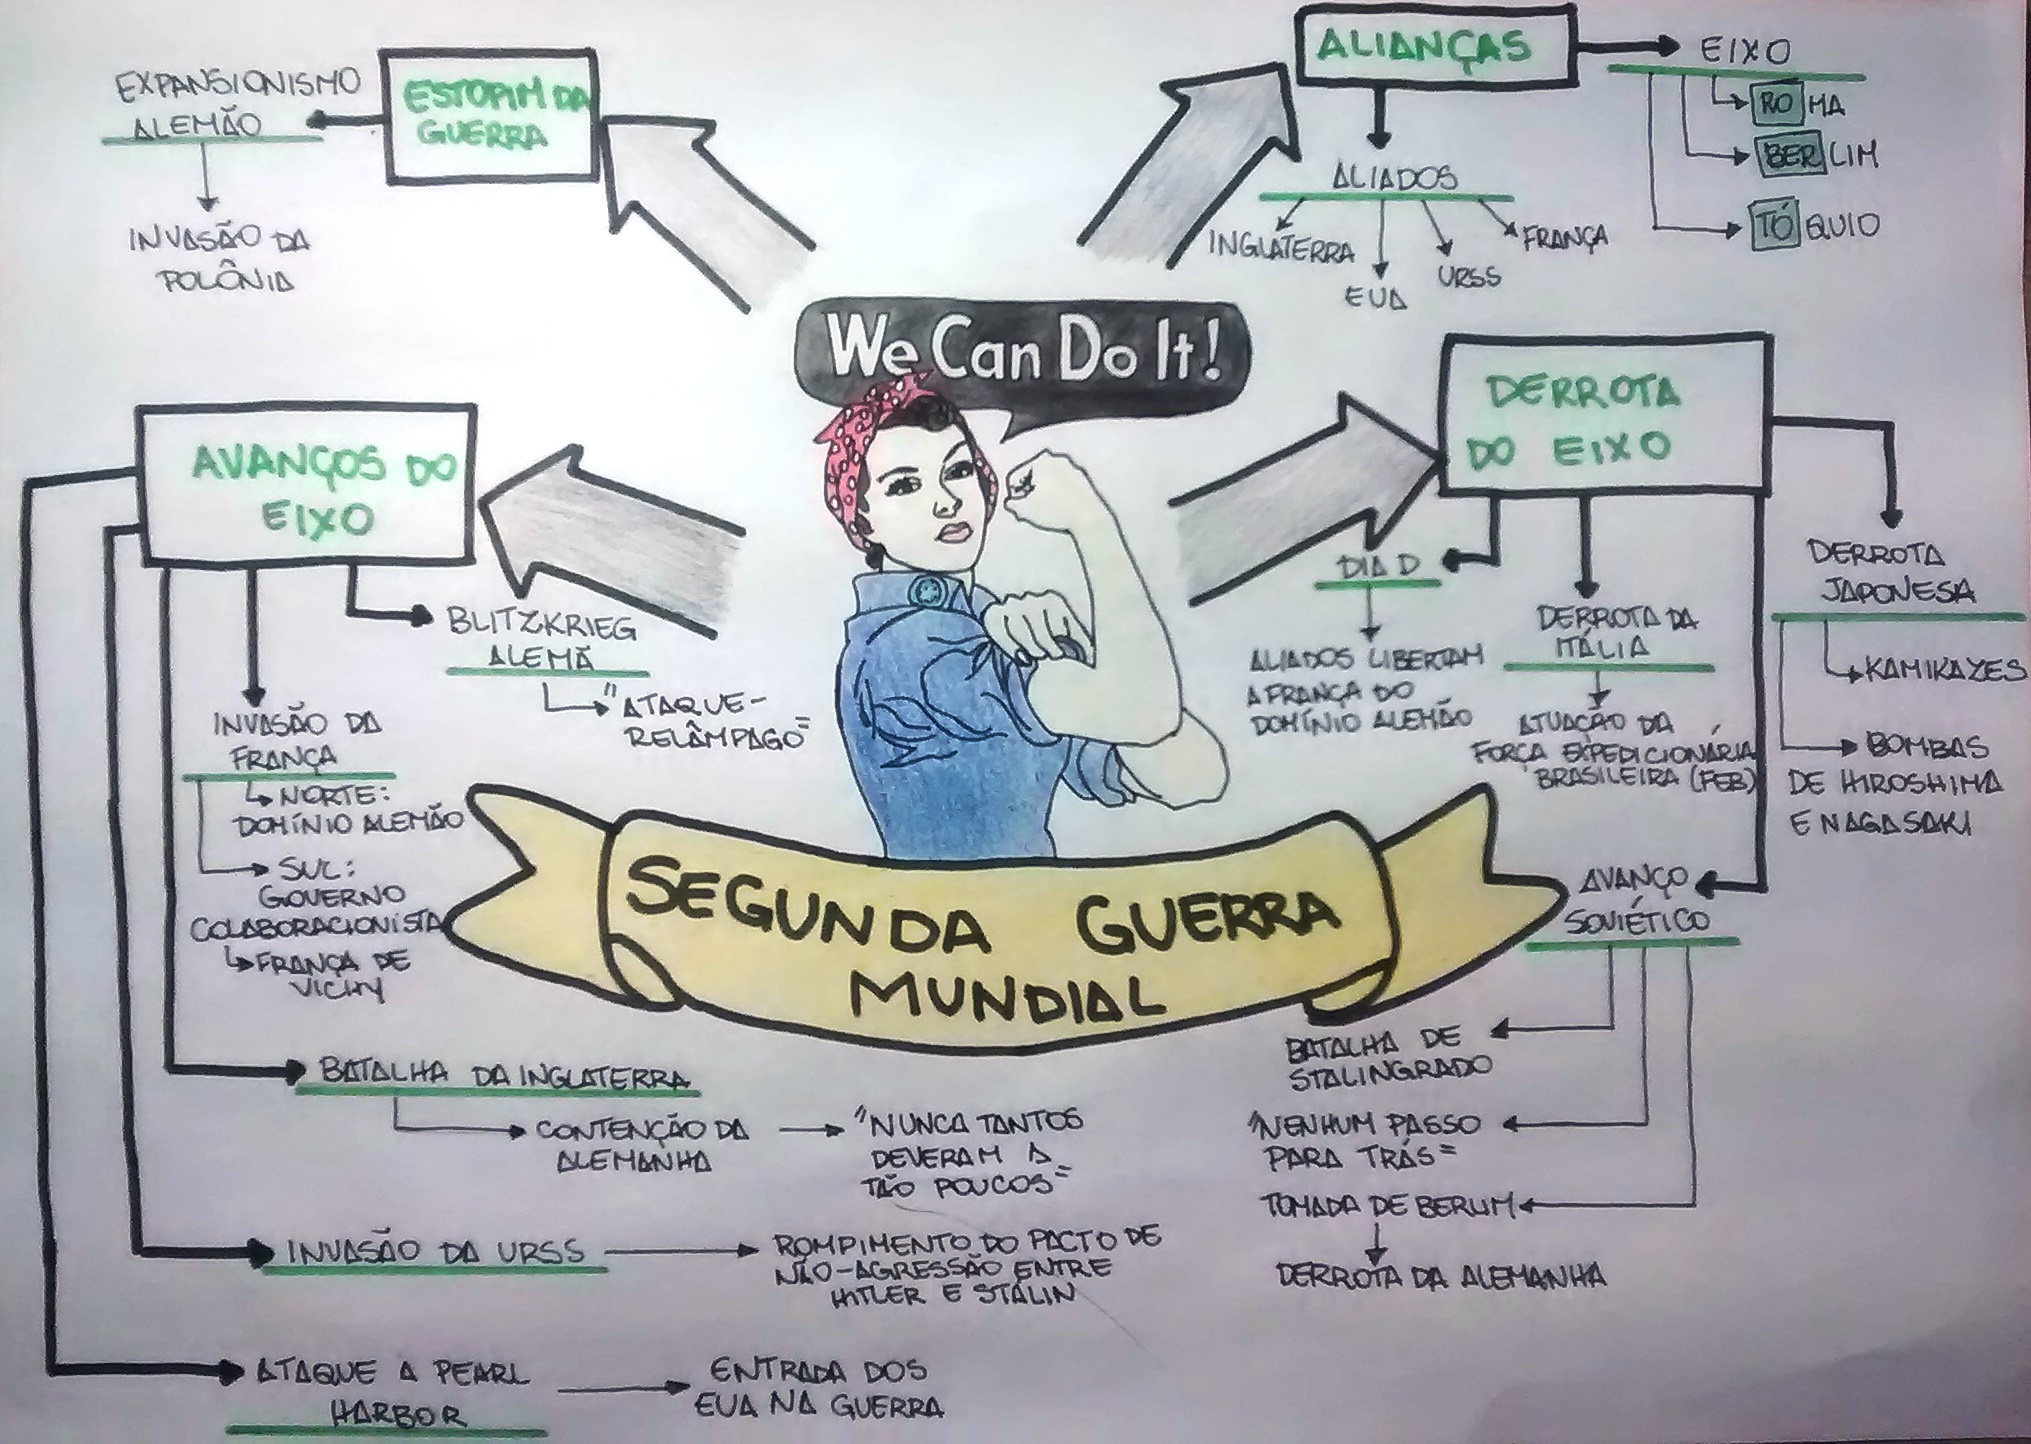 ESTOPIM DA
GUERRA
EXPANSIONISMO
ALEMÃO
INVASÃO DA
POLÔNIA
ALIANÇAS
EIXO
ROMA
BERLIM
TÓQUIO
ALIADOS
INGLATERRA
EUA
URSS
FRANÇA
We Can Do It!
AVANÇOS DO
EIXO
BLITZKRIEG
ALEMÃ
"ATAQUE-
RELÂMPAGO"
INVASÃO DA
FRANÇA
NORTE:
DOMÍNIO ALEMÃO
SUL:
GOVERNO
COLABORACIONISTA
FRANÇA DE
VICHY
BATALHA DA INGLATERRA
CONTENÇÃO DA
ALEMANHA
"NUNCA TANTOS
DEVERAM A
TÃO POUCOS"
INVASÃO DA URSS
ROMPIMENTO DO PACTO DE
NÃO-AGRESSÃO ENTRE
HITLER E STALIN
ATAQUE A PEARL
HARBOR
ENTRADA DOS
EUA NA GUERRA
DERROTA
DO EIXO
DIA D
ALIADOS LIBERTAM
A FRANÇA DO
DOMÍNIO ALEMÃO
DERROTA DA
ITÁLIA
ATUAÇÃO DA
FORÇA EXPEDICIONÁRIA
BRASILEIRA (FEB)
DERROTA
JAPONESA
KAMIKAZES
BOMBAS
DE HIROSHIMA
E NAGASAKI
AVANÇO
SOVIÉTICO
BATALHA DE
STALINGRADO
"NENHUM PASSO
PARA TRÁS"
TOMADA DE BERLIM
DERROTA DA ALEMANHA
SEGUNDA GUERRA
MUNDIAL